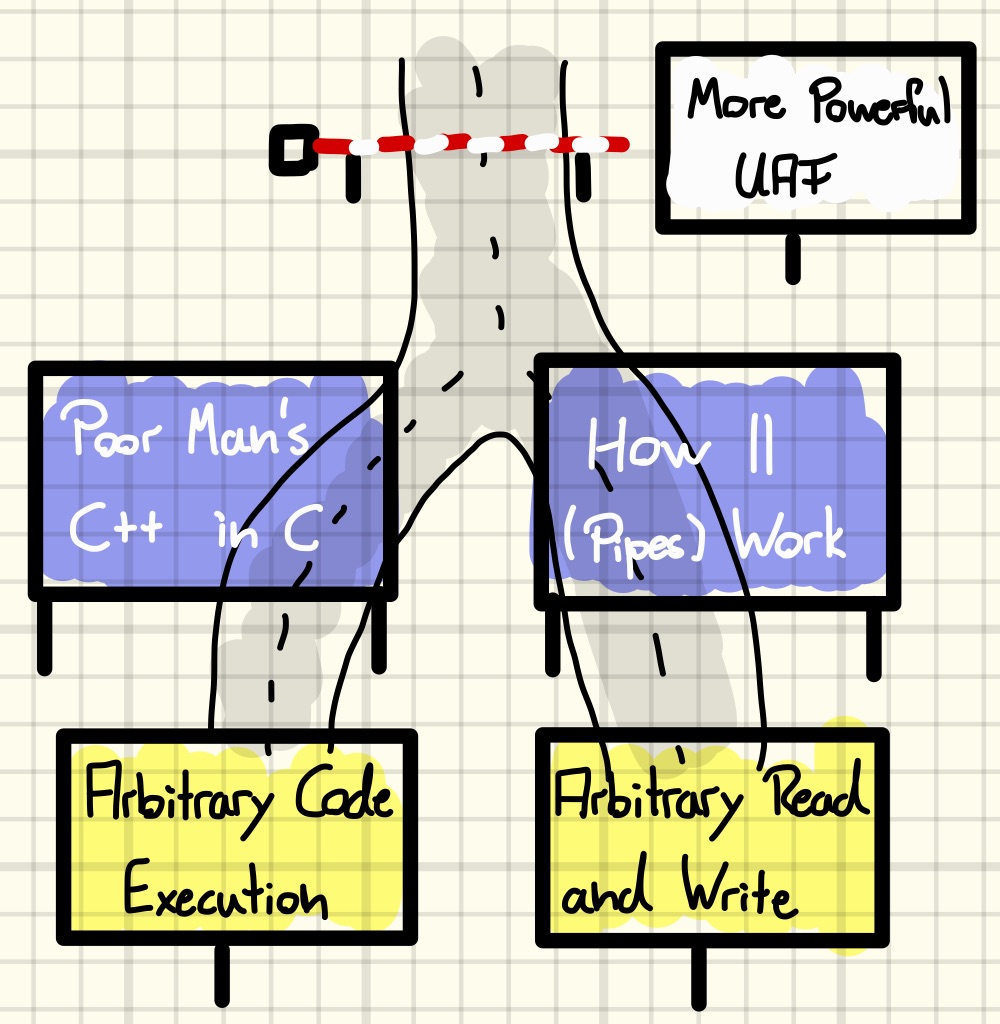 More Powerful
UAF
Poor Man's
C++ in C
How ||
(Pipes) Work
Arbitrary Code
Execution
Arbitrary Read
and Write